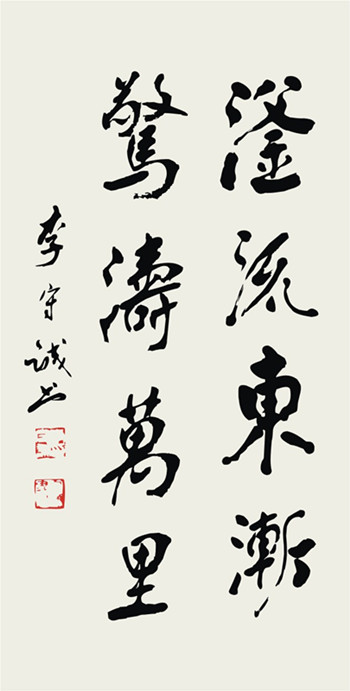 滏流東漸
驚濤萬里
李守誠书